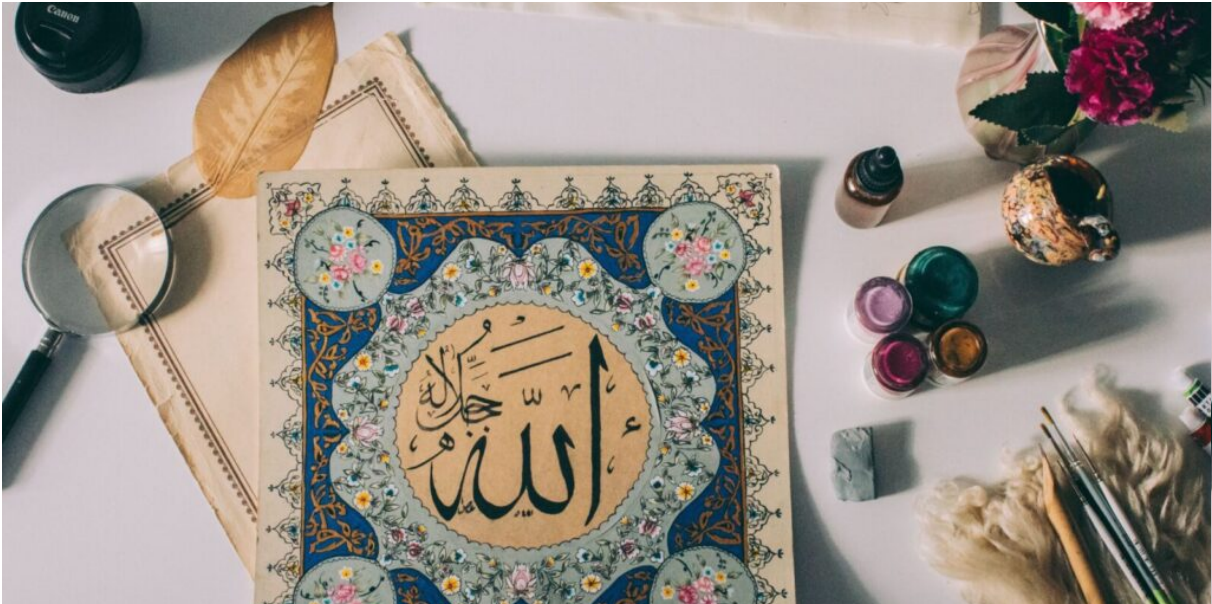 Canon
الله
جل جلاله